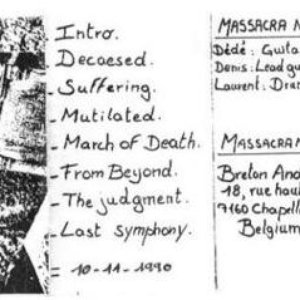 Intro.
Decaesed.
Suffering.
Mutilated.
March of Death.
From Beyond.
The judgment.
Last symphony.
= 10-11-1990
MASSACRA
Dédé : Guita
Denis : Lead gu
Laurent : Dru
MASSACRA
Breton And
18, rue hau
7160 Chapell
Belgium